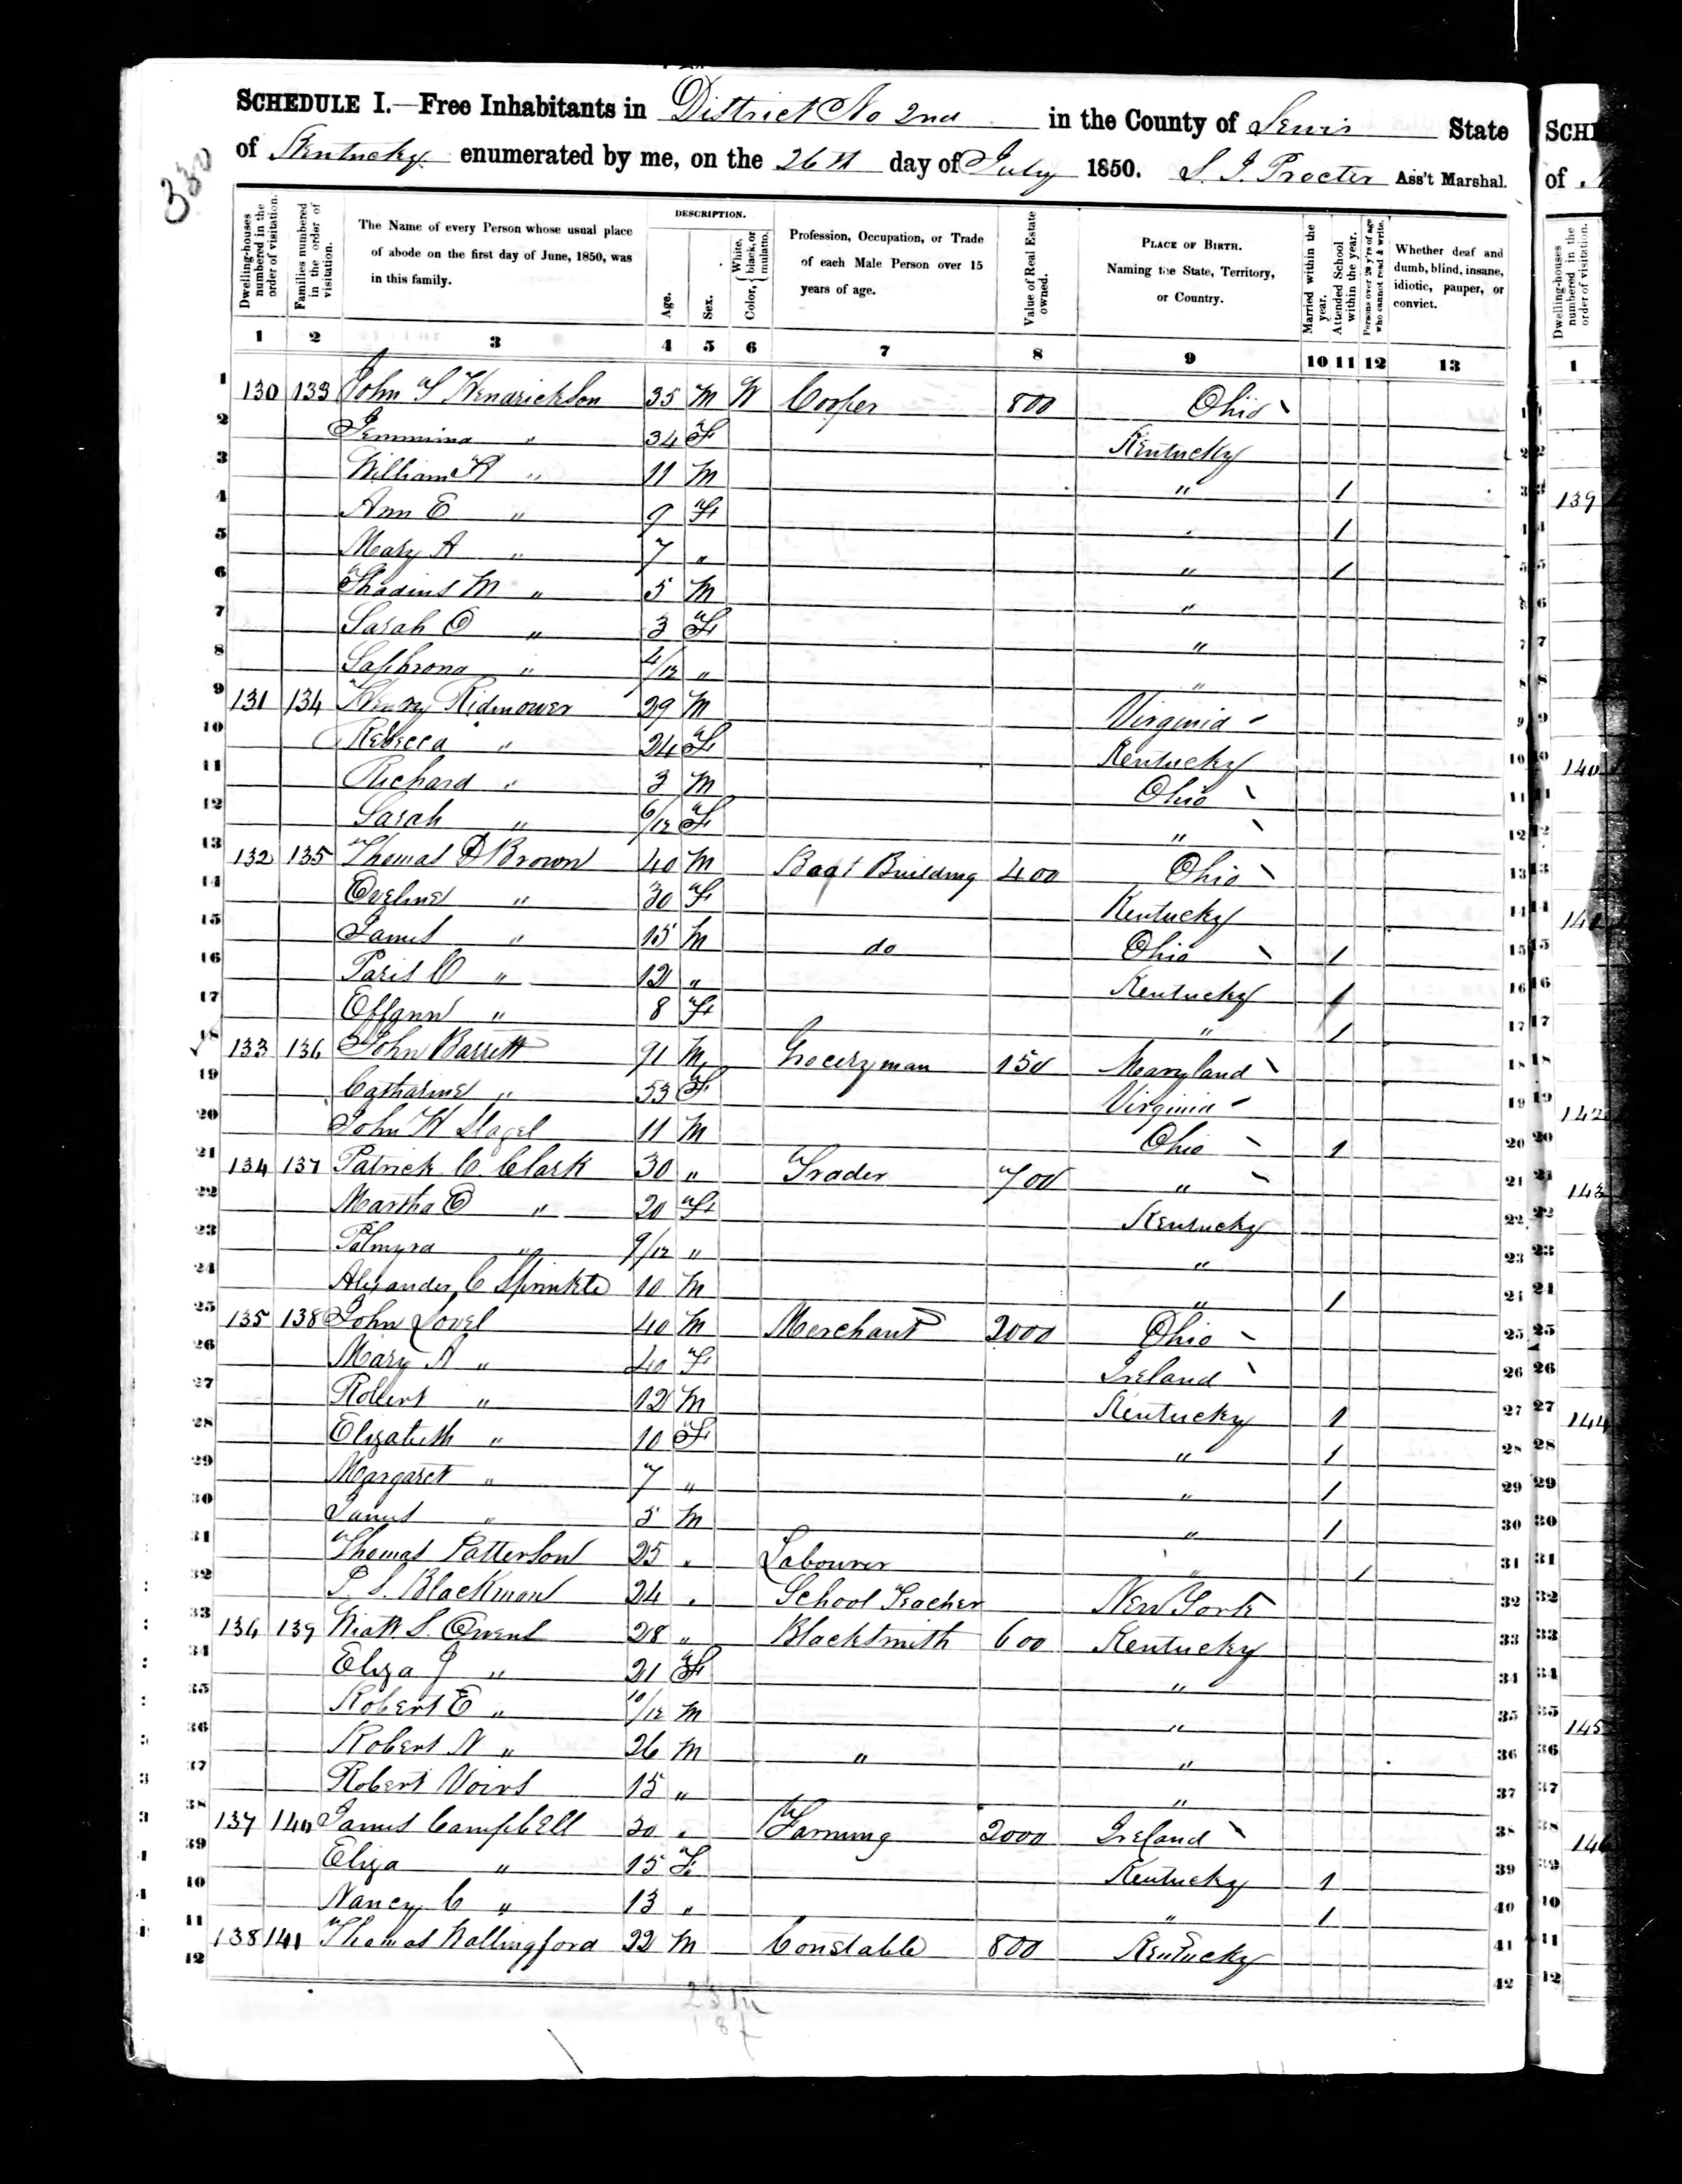 SCHEDULE I.—Free Inhabitants in District No 2nd in the County of Lewis State
of Kentucky enumerated by me, on the 26th day of July 1850. S. J. Procter Ass't Marshal.
330
Dwelling-houses numbered in the order of visitation.
Families numbered in the order of visitation.
The Name of every Person whose usual place of abode on the first day of June, 1850, was in this family.
DESCRIPTION.
Age.
Sex.
Color, { White, black, or mulatto.
Profession, Occupation, or Trade of each Male Person over 15 years of age.
Value of Real Estate owned.
PLACE OF BIRTH. Naming the State, Territory, or Country.
Married within the year.
Attended School within the year.
Persons over 20 y'rs of age who cannot read & write.
Whether deaf and dumb, blind, insane, idiotic, pauper, or convict.
1 2 3 4 5 6 7 8 9 10 11 12 13
1 130 133 John S Hendrickson 35 M W Cooper 800 Ohio 1
2 Jemmima " 34 F Kentucky 2
3 William H " 11 M " 1 3
4 Ann E " 9 F " 1 4
5 Mary A " 7 " " 1 5
6 Thadius M " 5 M " 6
7 Sarah O " 3 F " 7
8 Saphrona " 4/12 " " 8
9 131 134 Henry Ridenower 29 M Virginia 9
10 Rebecca " 24 F Kentucky 10
11 Richard " 3 M Ohio 11
12 Sarah " 6/12 F " 12
13 132 135 Thomas D Brown 40 M Boat Building 400 Ohio 13
14 Eveline " 30 F Kentucky 14
15 James " 15 M do Ohio 1 15
16 Paris O " 12 " Kentucky 1 16
17 Effann " 8 F " 1 17
18 133 136 John Barrett 91 M Groceryman 150 Maryland 18
19 Catharine " 53 F Virginia 19
20 John H Slagel 11 M Ohio 1 20
21 134 137 Patrick C Clark 30 " Trader 700 " 21
22 Martha E " 20 F Kentucky 22
23 Palmyra " 9/12 " " 23
24 Alexander C Sprinkle 10 M " 1 24
25 135 138 John Lovel 40 M Merchant 2000 Ohio 25
26 Mary A " 40 F Ireland 26
27 Robert " 12 M Kentucky 1 27
28 Elizabeth " 10 F " 1 28
29 Margaret " 7 " " 1 29
30 James " 5 M " 1 30
31 Thomas Patterson 25 " Labourer " 1 31
32 P. S. Blackman 24 " School Teacher New York 32
33 136 139 Wiatt S. Owens 28 " Blacksmith 600 Kentucky 33
34 Eliza J " 21 F " 34
35 Robert E " 10/12 M " 35
36 Robert N " 26 M " " 36
37 Robert Voirs 15 " " 37
38 137 140 James Campbell 30 " Farming 2000 Ireland 38
39 Eliza " 15 F Kentucky 1 39
40 Nancy C " 13 " " 1 40
41 138 141 Thomas Wallingford 22 M Constable 800 Kentucky 41
42 42
23 m
18 f
SCHE
of
Dwelling-houses numbered in the order of visitation.
1
139
140
142
143
144
145